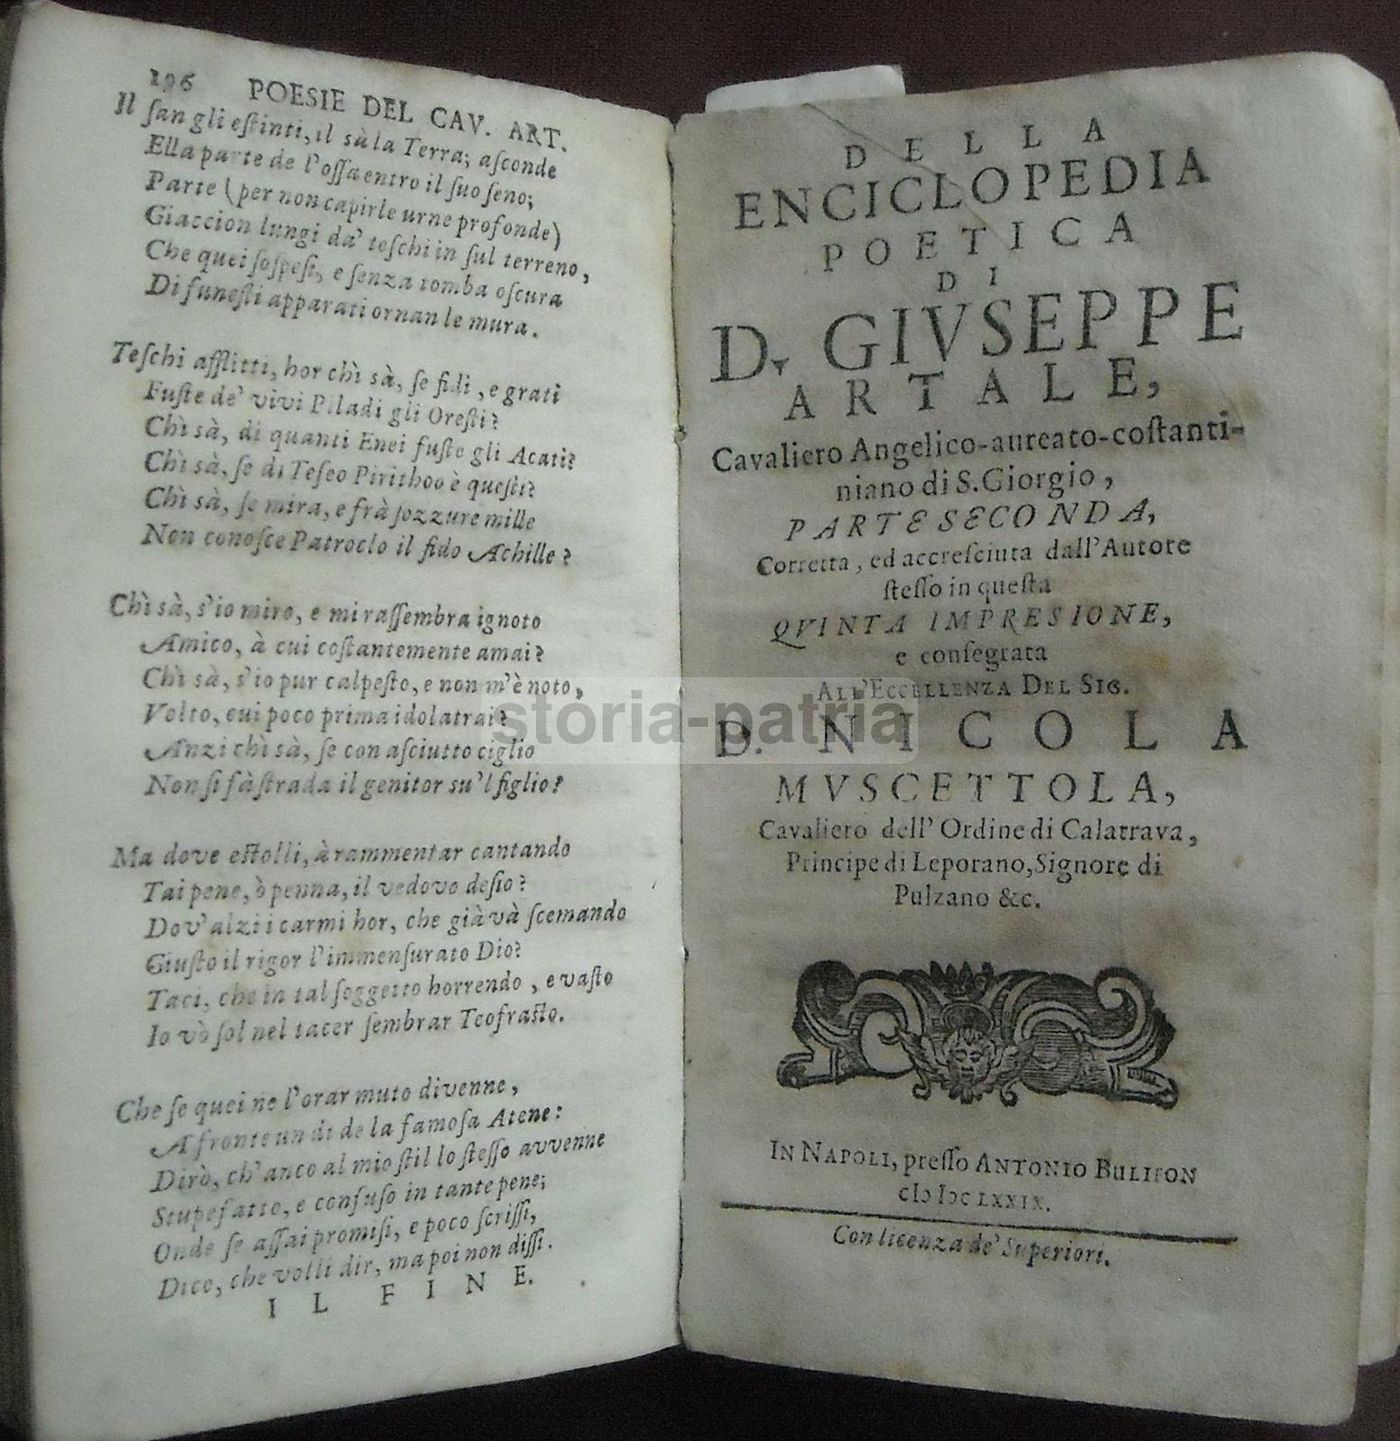 196 POESIE DEL CAV. ART.
Il ſan gli eſtinti, il sà la Terra; aſconde
Ella parte de l'oſſa entro il ſuo ſeno;
Parte (per non capirle urne profonde)
Giaccion lungi da' teſchi in ſul terreno,
Che quei ſoſpeſi, e ſenza tomba oſcura
Di funeſti apparati ornan le mura.
Teſchi afflitti, hor chì sà, ſe fidi, e grati
Fuſte de' vivi Piladi gli Oreſti?
Chì sà, di quanti Enei fuſte gli Acati?
Chì sà, ſe di Teſeo Pirithoo è queſti?
Chì sà, ſe mira, e frà ſozzure mille
Non conoſce Patroclo il fido Achille?
Chì sà, s'io miro, e mi raſſembra ignoto
Amico, à cui coſtantemente amai?
Chì sà, s'io pur calpeſto, e non m'è noto,
Volto, cui poco prima idolatrai?
Anzi chì sà, ſe con aſciutto ciglio
Non ſi fà ſtrada il genitor su'l figlio?
Ma dove eſtolli, à rammentar cantando
Tai pene, ò penna, il vedovo deſio?
Dov'alzi i carmi hor, che già và ſcemando
Giuſto il rigor l'immenſurato Dio?
Taci, che in tal ſoggetto horrendo, e vaſto
Io vò ſol nel tacer ſembrar Teofraſto.
Che ſe quei ne l'orar muto divenne,
A fronte un dì de la famoſa Atene:
Dirò, ch'anco al mio ſtil lo ſteſſo avvenne
Stupefatto, e confuſo in tante pene;
Onde ſe aſſai promiſi, e poco ſcriſſi,
Dico, che volli dir, ma poi non diſſi.
IL FINE.
DELLA
ENCICLOPEDIA
POETICA
DI
D. GIVSEPPE
ARTALE,
Cavaliero Angelico-aureato-coſtanti-
niano di S. Giorgio,
PARTE SECONDA,
Corretta, ed accreſciuta dall'Autore
ſteſſo in queſta
QVINTA IMPRESIONE,
e conſegrata
ALL'ECCELLENZA DEL SIG.
D. NICOLA
MVSCETTOLA,
Cavaliero dell'Ordine di Calatrava,
Principe di Leporano, Signore di
Pulzano &c.
IN NAPOLI, preſſo ANTONIO BULIFON
cIↄ Iↄc LXXIX.
Con licenza de' Superiori.
storia-patria